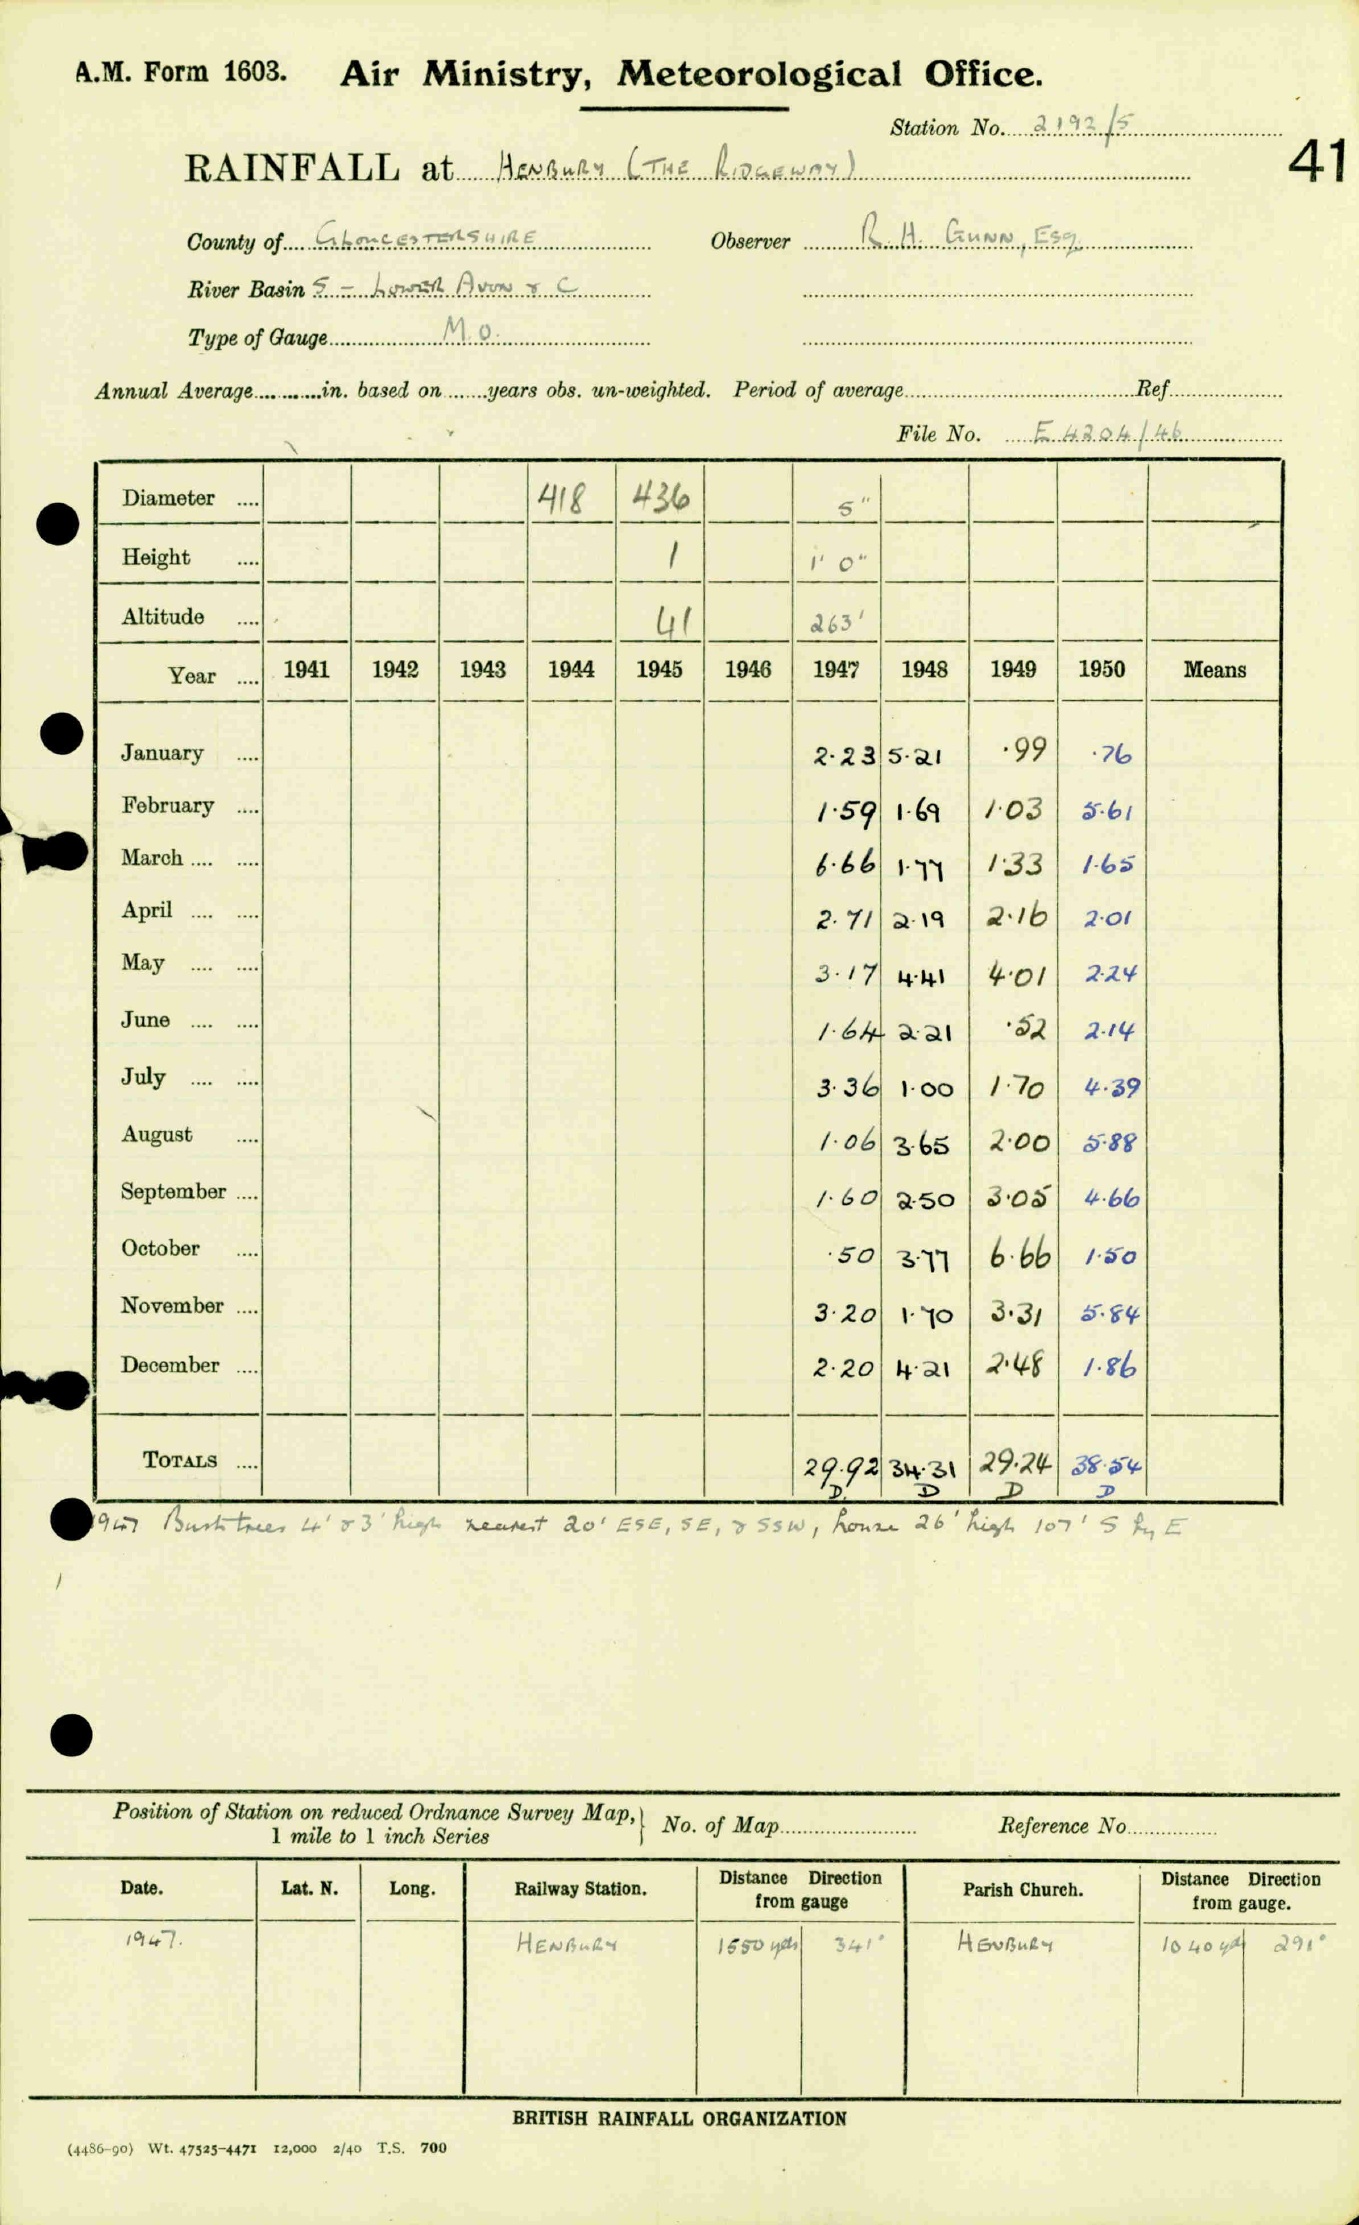 A.M. Form 1603. Air Ministry, Meteorological Office.
Station No. 2192/5
41
RAINFALL at HENBURY (THE RIDGEWAY)
County of GLOUCESTERSHIRE Observer R. H. GUNN, ESQ
River Basin 5 - LOWER AVON & C
Type of Gauge M.O.
Annual Average............in. based on.......years obs. un-weighted. Period of average............Ref............
File No. E 4204/46
Diameter .... 418 436 5"
Height .... 1 1' 0"
Altitude .... 41 263'
Year .... 1941 1942 1943 1944 1945 1946 1947 1948 1949 1950 Means
January .... 2.23 5.21 .99 .76
February .... 1.59 1.69 1.03 5.61
March .... .... 6.66 1.77 1.33 1.65
April .... .... 2.71 2.19 2.16 2.01
May .... .... 3.17 4.41 4.01 2.24
June .... .... 1.64 2.21 .52 2.14
July .... .... 3.36 1.00 1.70 4.39
August .... 1.06 3.65 2.00 5.88
September .... 1.60 2.50 3.05 4.66
October .... .50 3.77 6.66 1.50
November .... 3.20 1.70 3.31 5.84
December .... 2.20 4.21 2.48 1.86
TOTALS .... 29.92 34.31 29.24 38.54
D D D D
1947 Bush trees 4' & 3' high nearest 20' ESE, SE, & SSW, house 26' high 107' S by E
Position of Station on reduced Ordnance Survey Map, 1 mile to 1 inch Series } No. of Map............ Reference No............
Date. Lat. N. Long. Railway Station. Distance Direction from gauge Parish Church. Distance Direction from gauge.
1947. HENBURY 1550 yds 341° HENBURY 1040 yds 291°
BRITISH RAINFALL ORGANIZATION
(4486-90) Wt. 47525-4471 12,000 2/40 T.S. 700